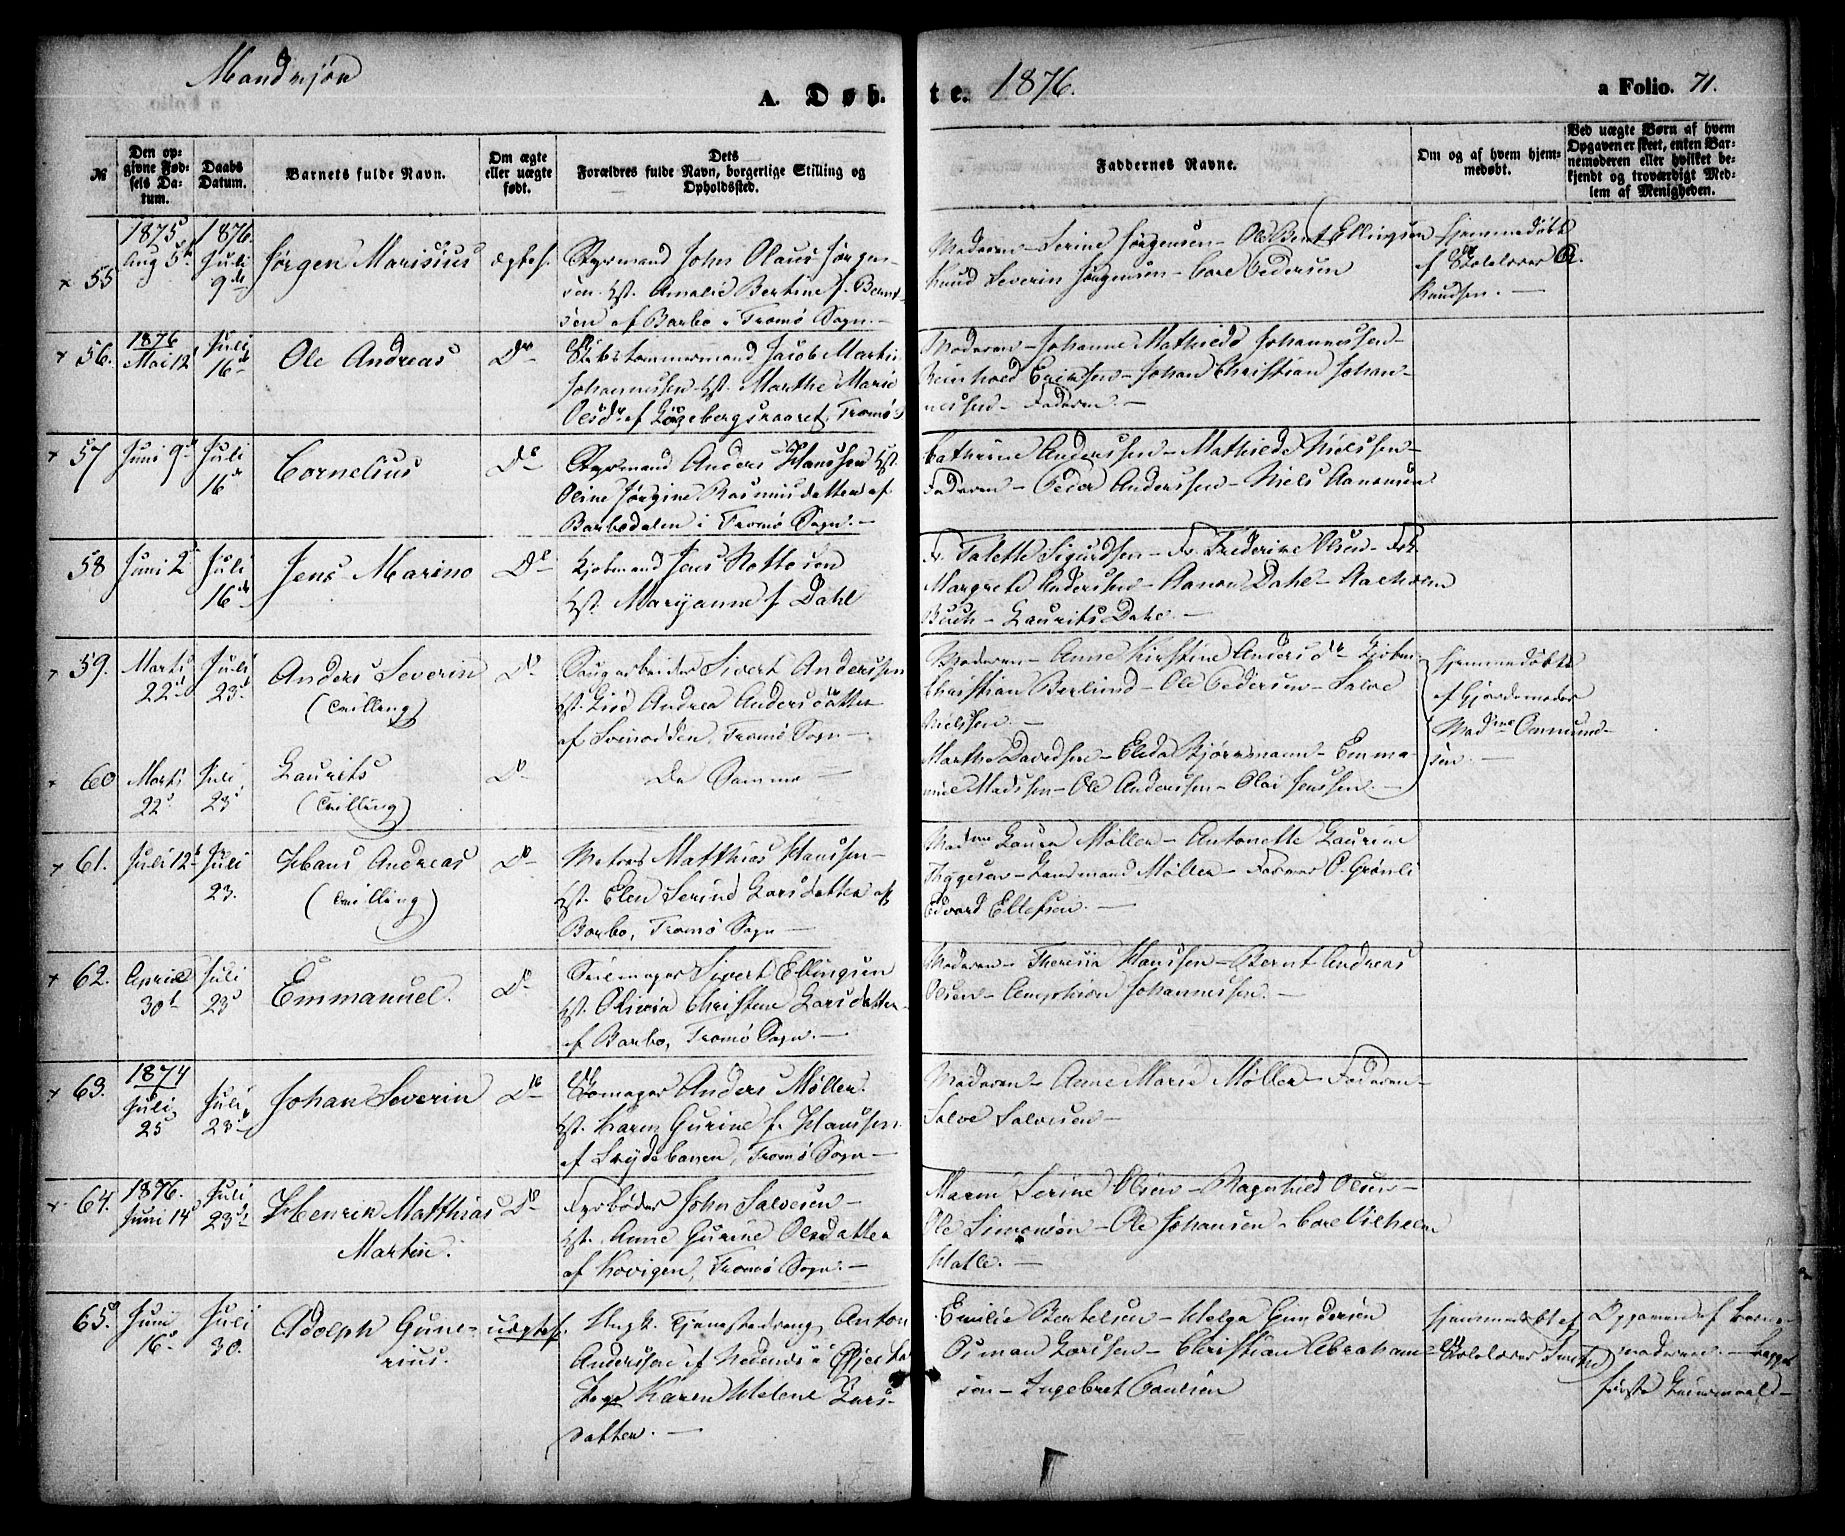 Mandkjøn
A. Døbte. 1876.
a Folio. 71.
№
Den opgivne Fødsels Datum.
Daabs Datum.
Barnets fulde Navn.
Om ægte eller uægte født.
Dets Forældres fulde Navn, borgerlige Stilling og Opholdssted.
Faddernes Navne.
Om og af hvem hjemmedøbt.
Ved uægte Børn af hvem Opgaven er skeet, enten Barnemoderen eller hvilket bekjendt og troværdigt Medlem af Menigheden.
55
1875 Aug 5
1876. Juli 9de
Jørgen Marisius
ægtef.
Styrmand John Olaus Jørgen-
sen Hst. Amalie Bertine f. Bernt-
sen af Barbo i Tromø Sogn. —
Moderen – Serine Jørgensen – Ole Bent Ellingsen
Knud Severin Jørgensen – Carl Pedersen
Hjemmedøbt
af Skolelærer
Knudsen. —
56.
1876 Mai 12
Juli 16
Ole Andreas
Do
Skibstømmermand Jacob Martin
Johannessen Hst. Marthe Marie
Olsdr af Tromø
Moderen – Johanne Mathilde Johannessen –
Reinhold Eriksen – Johan Christian Johan-
nessen – Faderen. —
57
Juni 9
Juli 16
Cornelius
Do
Styrmand Anders Hanssen Hst.
Oline Jørgine Rasmusdatter af
Barbodalen i Tromø Sogn. —
Cathrine Anderssen – Mathilde Nielssen –
Faderen – Peder Anderssen – Niels Aanonsen
58
Juni 2
Juli 16de
Jens Marino
Do
Kjøbmand Jens Nottosen
Hst. Maryanne f. Dahl
Fr. Talette Sigurdsen – Fr. Frederikke Olsen – Frk
Margrete Anderssen – Aanon Dahl –
Buch – Laurits Dahl. —
59.
Marts 22
Juli 23
Anders Severin
(Tvilling)
Do
Saugarbeider Sivert Anderssen
Hst. Lise Andrea Andersdatter
af Svinodden, Tromø Sogn —
Moderen – Anne Kirstine Andersdr
Christian Berlund – Ole Pedersen – Salve
Nielssen. —
Hjemmedøbte
af Gjordemoder
Madme Omund-
sen. —
60
Marts 22
Juli 23
Laurits
(Tvilling)
Do
De Samme —
Marthe Davidsen – Elida Bjørnsmann – Emma-
nuel Madssen – Ole Anderssen – Olai Jenssen. —
61.
Juli 12
Juli 23.
Hans Andreas
(Tvilling)
Do
Matros Matthias Hanssen –
Hst. Elen Serine Larsdatter af
Barbo, Tromø Sogn —
Madme Laura Møller – Antonette Laurine
Tryggesen – Møller – O. Grømli
Edvard Ellefsen. —
62.
April 30
Juli 23
Emmanuel.
Do
Seilmager Sivert Ellingsen
Hst. Olivia Christine Larsdatter
af Barbo, Tromø Sogn. —
Moderen – Theresia Hanssen – Bernt Andreas
Olsen – Amphion Johannessen. —
63.
1874 Juli 25
Juli 23
Johan Severin
Do
Skomager Anders Møller.
Hst. Karen Gurine f. Hanssen
af Tromø Sogn —
Moderen – Anne Marie Møller – Faderen –
Salve Salvesen —
64.
1876. Juni 14
Juli 23de
Henrik Matthias
Martin.
Do
Fyrbøder John Salvesen –
Hst. Anne Gurine Olsdatter
af Kovigen, Tromø Sogn. —
Maren Serine Olsen – Ragnhild Olsen –
Ole Simonsen – Ole Johansen – Carl Vilhelm
Halle. —
65.
Juni 16
Juli 30.
Adolph Gune-
rius.
uægtef.
Ungk. Tjenestedreng Anton
Anderssen af Nedenes i Øjestad
Pige Karen Helene Lars-
datter. —
Emilie Bertelsen – Helga Gundersen
Osman Larssen – Christian Abraham-
sen – Ingebret Paulsen
Hjemmedøbt af
Skolelærer
Opgaven af Barne-
moderen. – begges
første Leiermaal –